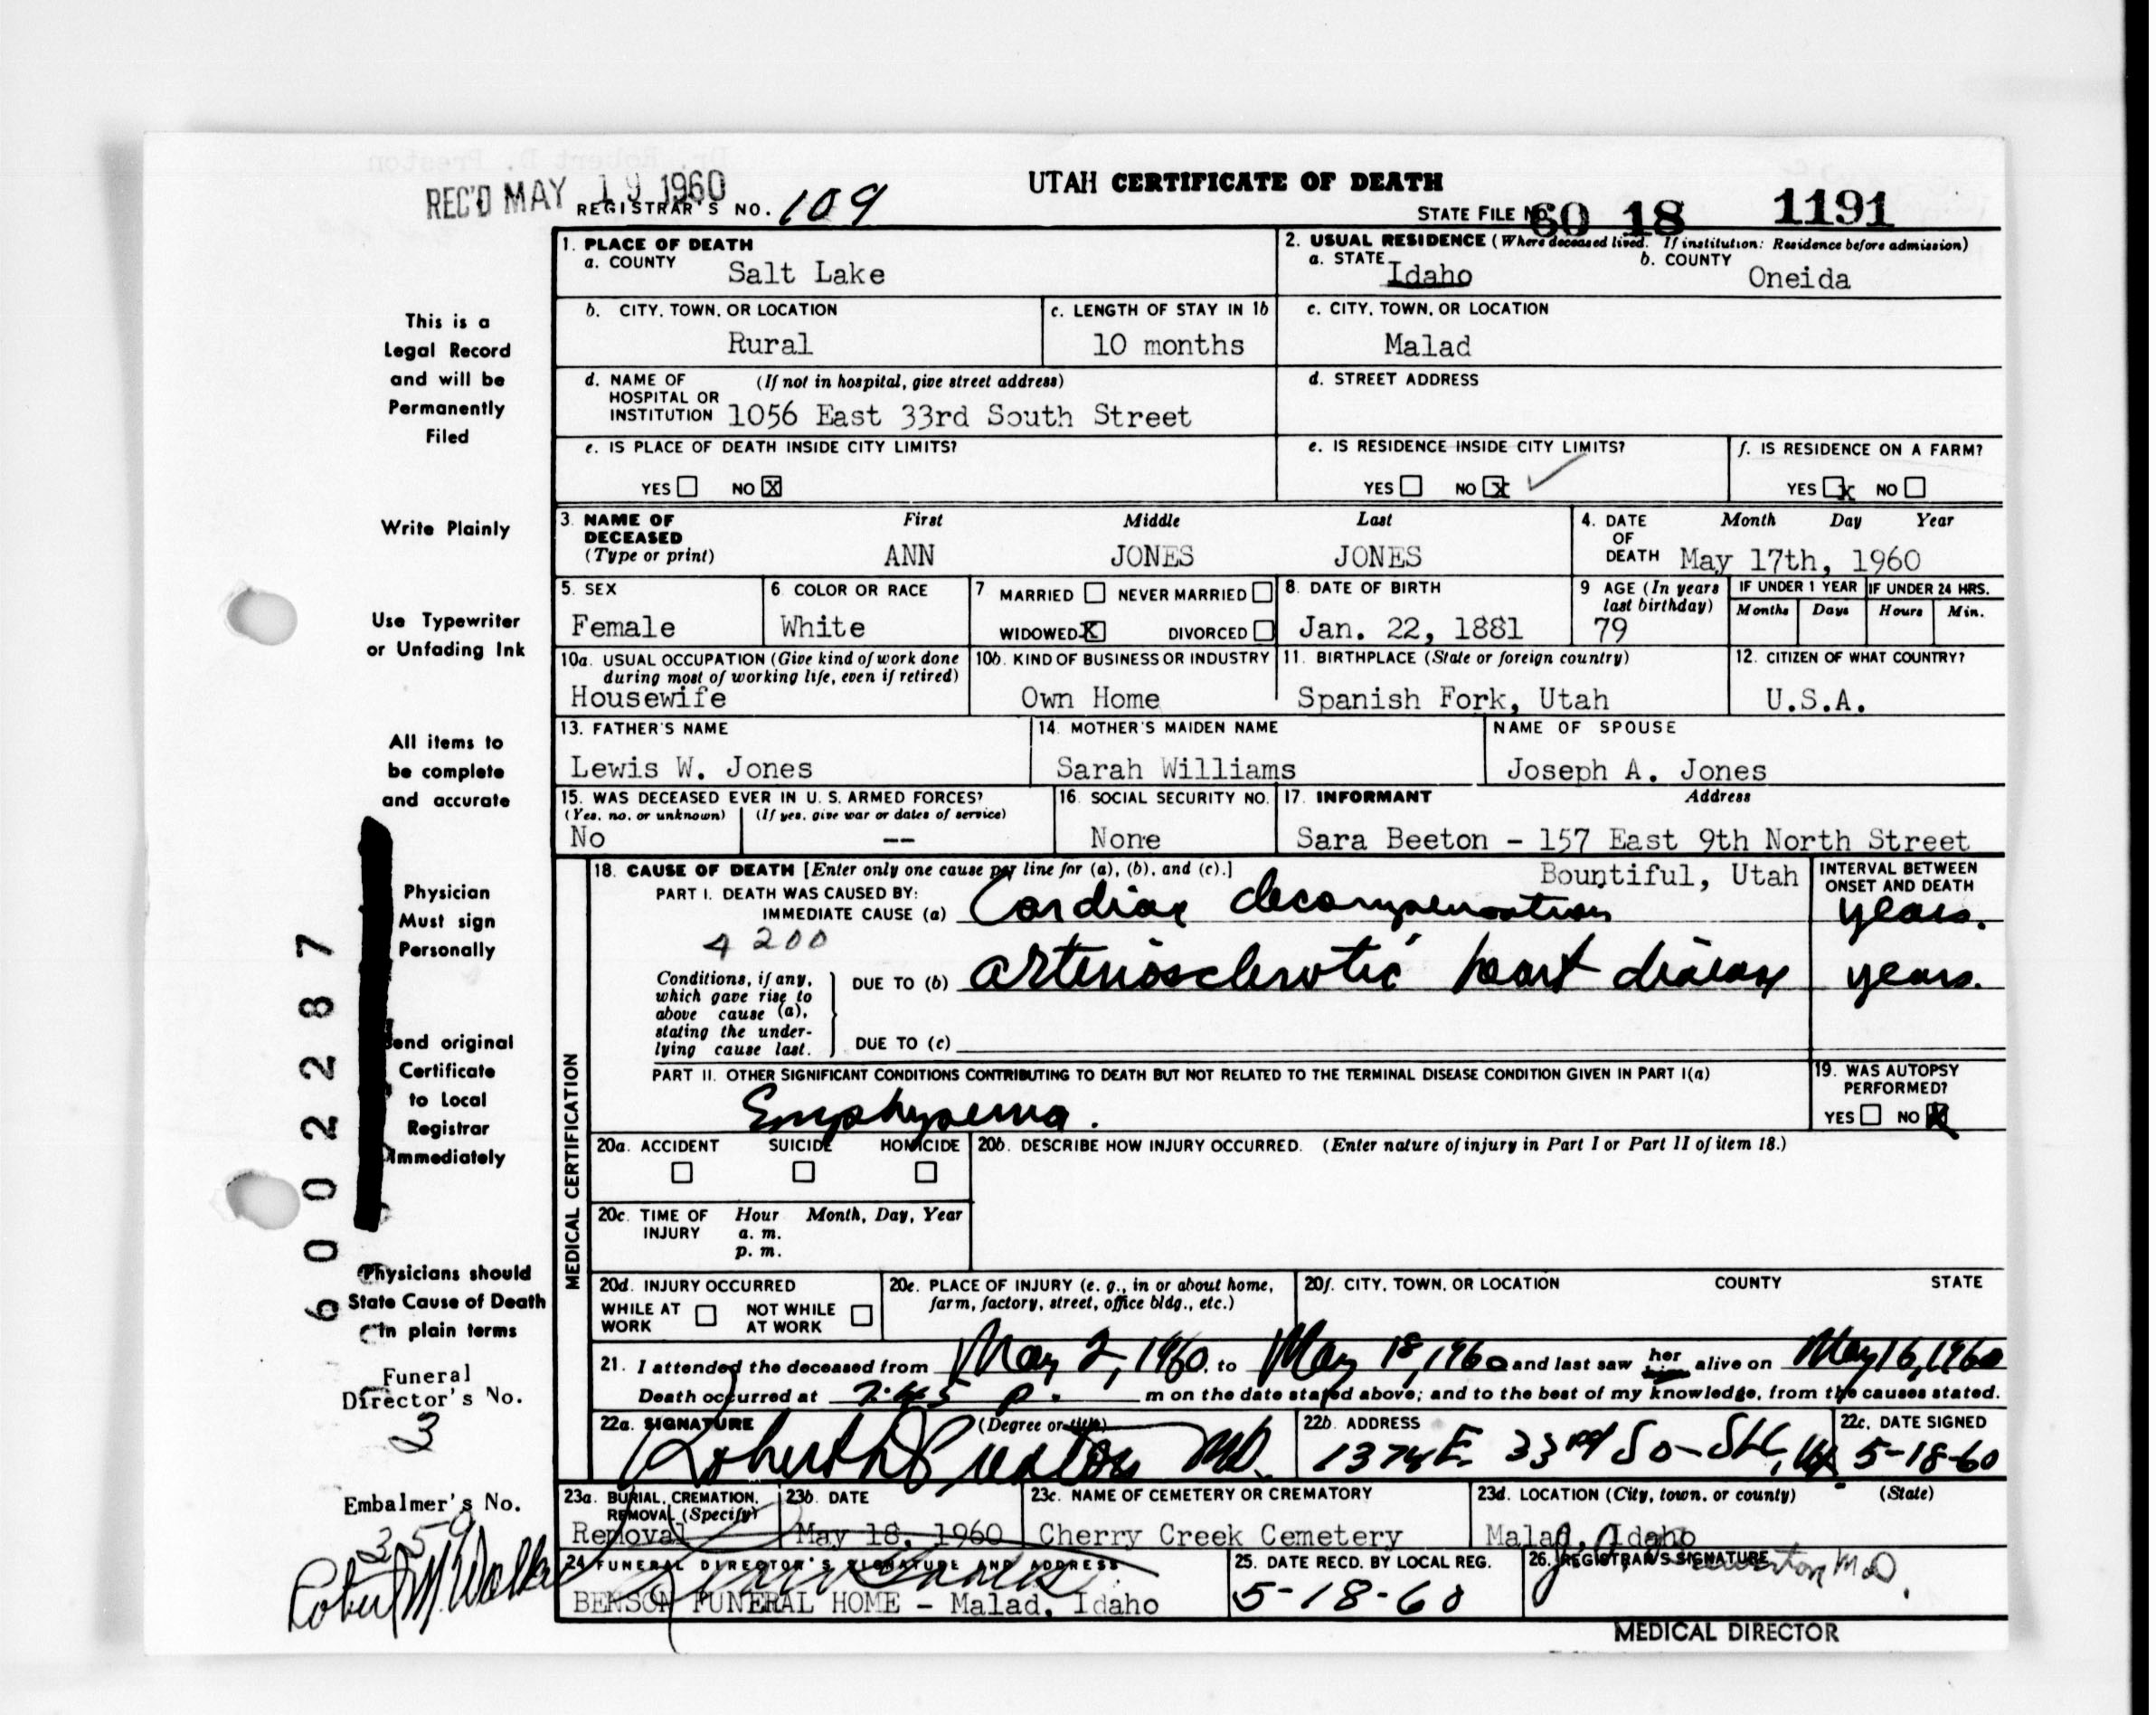 REC'D MAY 19 1960
REGISTRAR'S NO. 109
UTAH CERTIFICATE OF DEATH
STATE FILE NO. 60 18 1191
1. PLACE OF DEATH
a. COUNTY Salt Lake
2. USUAL RESIDENCE (Where deceased lived. If institution: Residence before admission)
a. STATE Idaho b. COUNTY Oneida
b. CITY, TOWN, OR LOCATION Rural
c. LENGTH OF STAY IN 1b 10 months
c. CITY, TOWN, OR LOCATION Malad
d. NAME OF HOSPITAL OR INSTITUTION (If not in hospital, give street address) 1056 East 33rd South Street
d. STREET ADDRESS
e. IS PLACE OF DEATH INSIDE CITY LIMITS?
YES NO X
e. IS RESIDENCE INSIDE CITY LIMITS?
YES NO X
f. IS RESIDENCE ON A FARM?
YES X NO
3. NAME OF DECEASED (Type or print) First Middle Last
ANN JONES JONES
4. DATE OF DEATH Month Day Year
May 17th, 1960
5. SEX Female
6. COLOR OR RACE White
7 MARRIED NEVER MARRIED
WIDOWED X DIVORCED
8. DATE OF BIRTH Jan. 22, 1881
9 AGE (In years last birthday) 79
IF UNDER 1 YEAR Months Days
IF UNDER 24 HRS. Hours Min.
10a. USUAL OCCUPATION (Give kind of work done during most of working life, even if retired) Housewife
10b. KIND OF BUSINESS OR INDUSTRY Own Home
11. BIRTHPLACE (State or foreign country) Spanish Fork, Utah
12. CITIZEN OF WHAT COUNTRY? U.S.A.
13. FATHER'S NAME Lewis W. Jones
14. MOTHER'S MAIDEN NAME Sarah Williams
NAME OF SPOUSE Joseph A. Jones
15. WAS DECEASED EVER IN U. S. ARMED FORCES?
(Yes, no, or unknown) No (If yes, give war or dates of service) --
16. SOCIAL SECURITY NO. None
17. INFORMANT Address
Sara Beeton - 157 East 9th North Street
Bountiful, Utah
18. CAUSE OF DEATH [Enter only one cause per line for (a), (b), and (c).]
INTERVAL BETWEEN ONSET AND DEATH
PART I. DEATH WAS CAUSED BY:
IMMEDIATE CAUSE (a) Cardiac decompensation years.
4200
Conditions, if any, which gave rise to above cause (a), stating the underlying cause last.
DUE TO (b) arteriosclerotic heart disease years.
DUE TO (c)
PART II. OTHER SIGNIFICANT CONDITIONS CONTRIBUTING TO DEATH BUT NOT RELATED TO THE TERMINAL DISEASE CONDITION GIVEN IN PART I(a)
Emphysema.
19. WAS AUTOPSY PERFORMED?
YES NO X
MEDICAL CERTIFICATION
20a. ACCIDENT SUICIDE HOMICIDE
20b. DESCRIBE HOW INJURY OCCURRED. (Enter nature of injury in Part I or Part II of item 18.)
20c. TIME OF INJURY Hour Month, Day, Year
a. m.
p. m.
20d. INJURY OCCURRED
WHILE AT WORK NOT WHILE AT WORK
20e. PLACE OF INJURY (e. g., in or about home, farm, factory, street, office bldg., etc.)
20f. CITY, TOWN, OR LOCATION COUNTY STATE
21. I attended the deceased from May 2, 1960, to May 18, 1960 and last saw her him alive on May 16, 1960
Death occurred at 7:45 p. m on the date stated above; and to the best of my knowledge, from the causes stated.
22a. SIGNATURE (Degree or title)
Robert D Preston MD.
22b. ADDRESS
1374 E. 33rd So- SLC, Ut.
22c. DATE SIGNED
5-18-60
23a. BURIAL, CREMATION, REMOVAL (Specify) Removal
23b. DATE May 18, 1960
23c. NAME OF CEMETERY OR CREMATORY Cherry Creek Cemetery
23d. LOCATION (City, town, or county) (State)
Malad, Idaho
24 FUNERAL DIRECTOR'S SIGNATURE AND ADDRESS
BENSON FUNERAL HOME - Malad, Idaho
25. DATE RECD. BY LOCAL REG.
5-18-60
26. REGISTRAR'S SIGNATURE
M.D.
MEDICAL DIRECTOR
This is a
Legal Record
and will be
Permanently
Filed
Write Plainly
Use Typewriter
or Unfading Ink
All items to
be complete
and accurate
Physician
Must sign
Personally
Send original
Certificate
to Local
Registrar
Immediately
Physicians should
State Cause of Death
in plain terms
Funeral
Director's No.
3
Embalmer's No.
359
Robert M. Walker
6002287